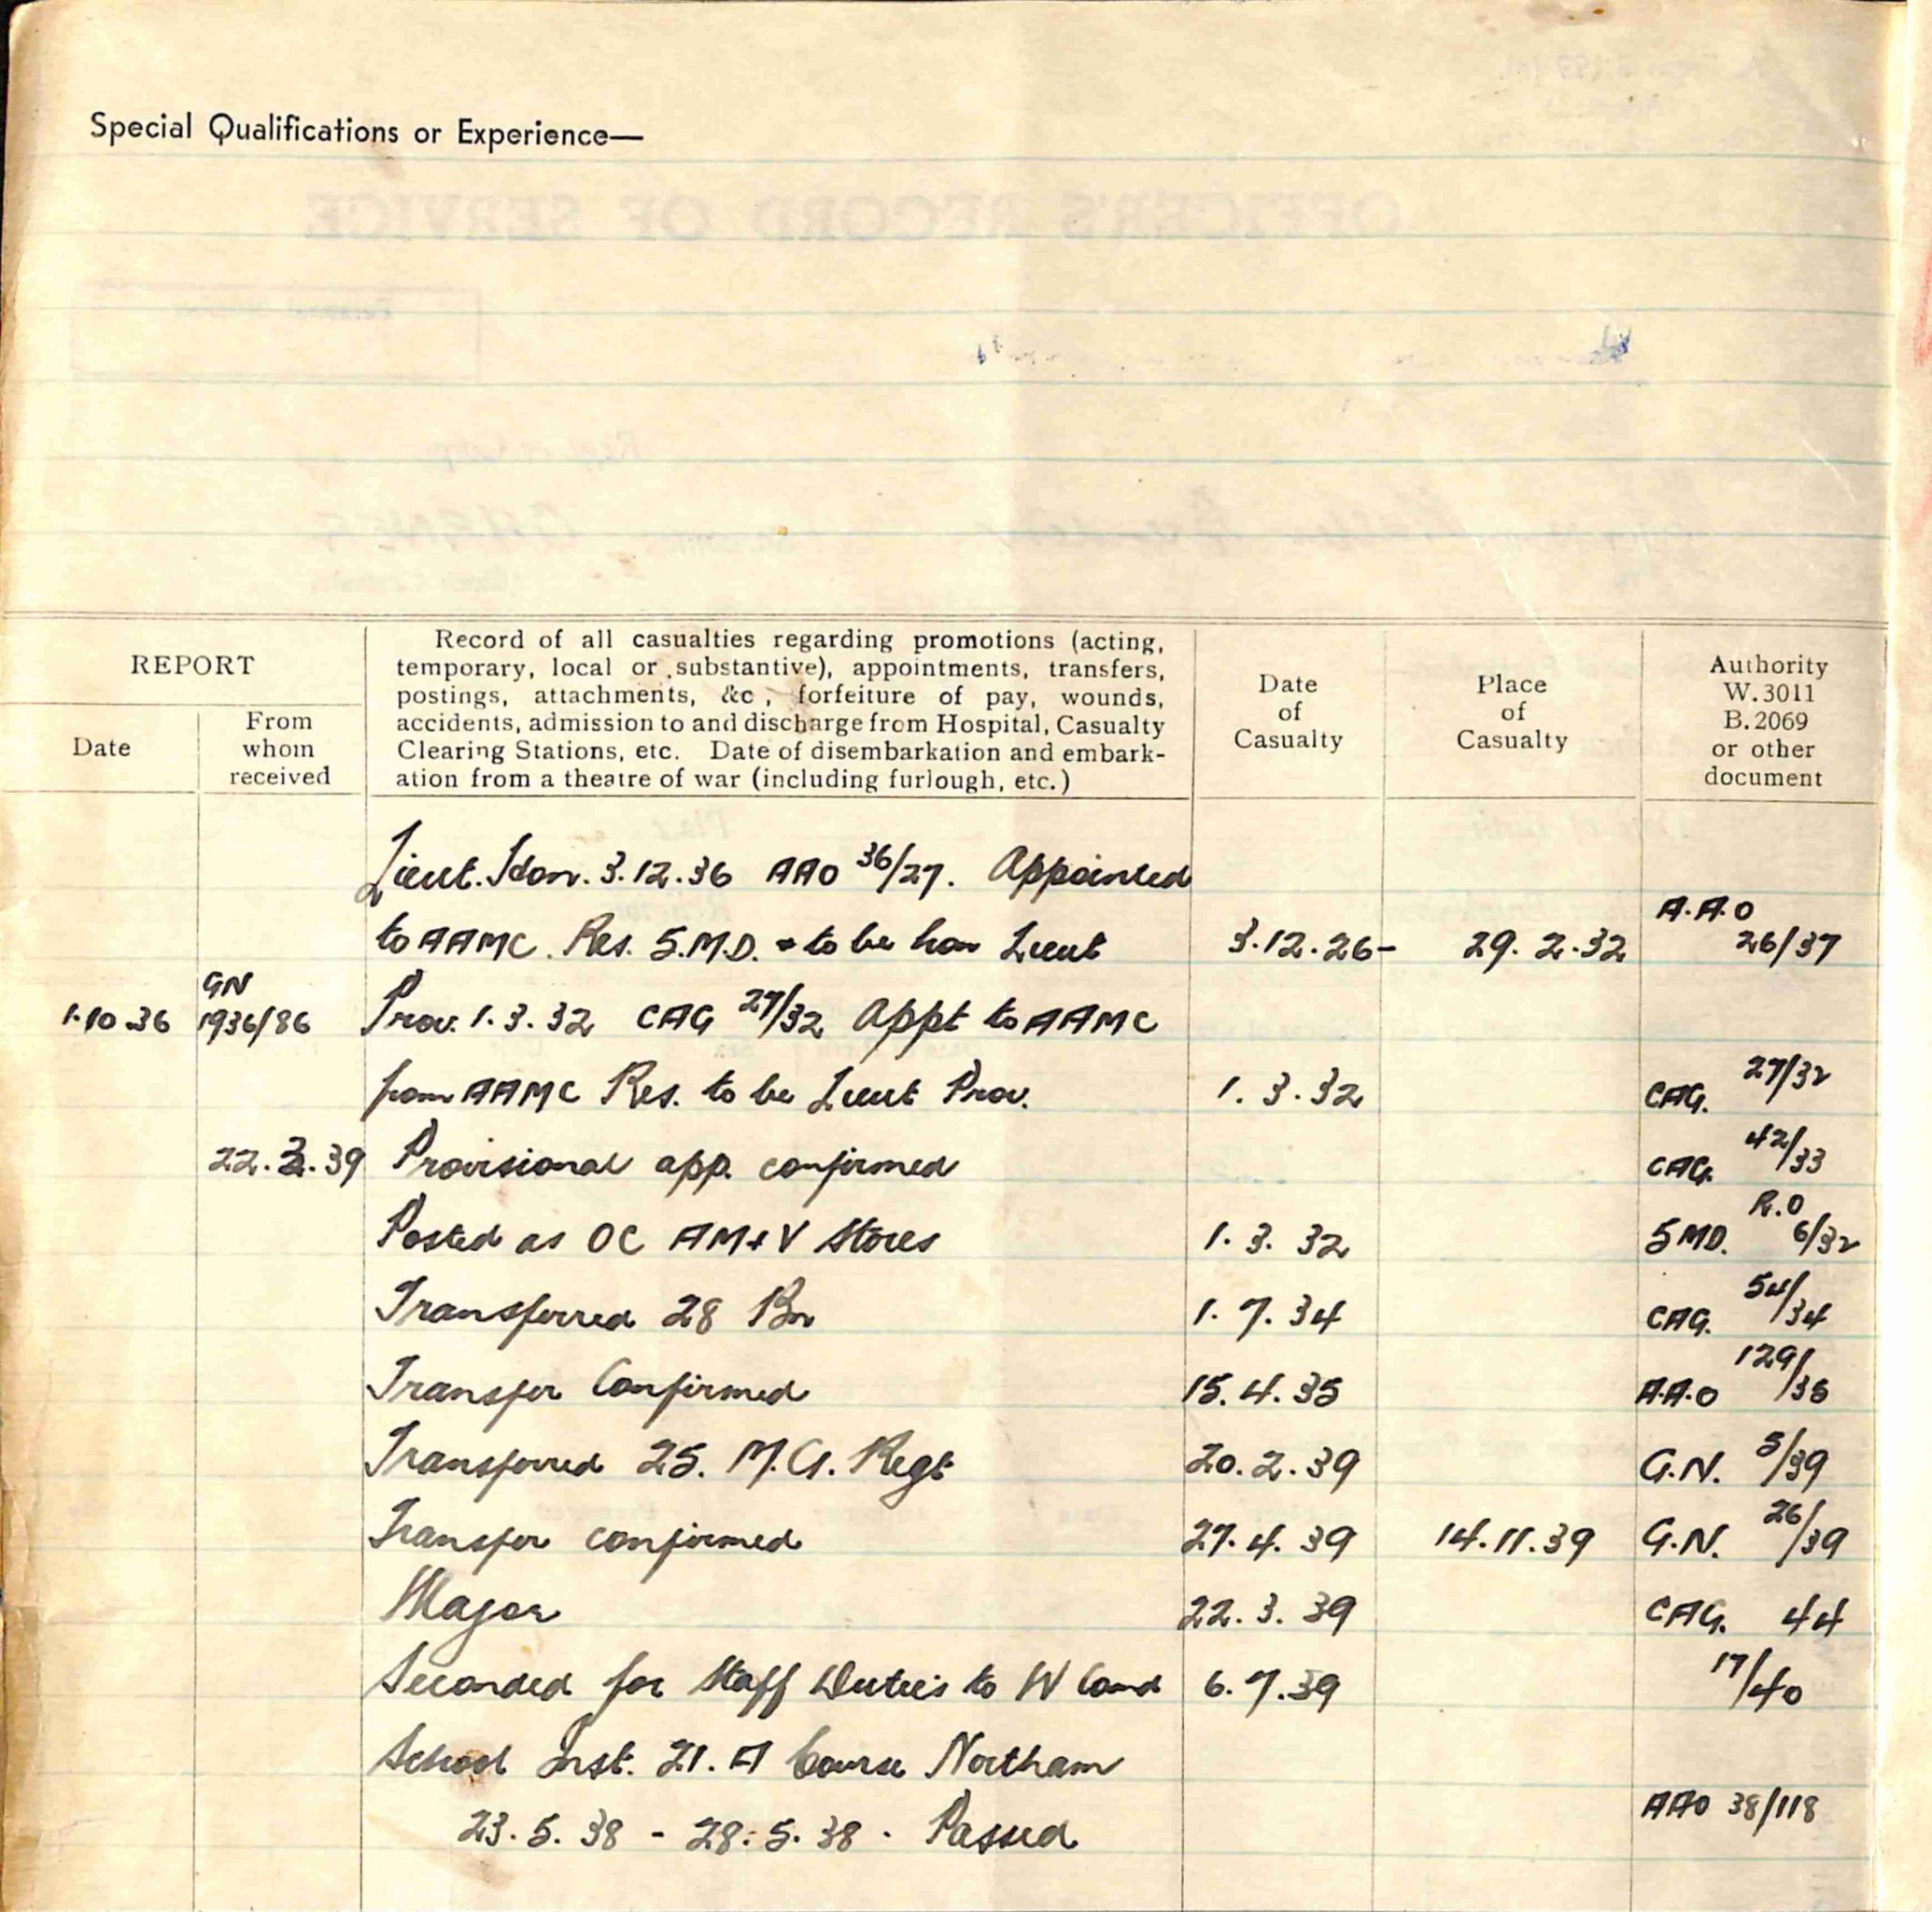 Special Qualifications or Experience—
REPORT
Date
From whom received
Record of all casualties regarding promotions (acting,
temporary, local or substantive), appointments, transfers,
postings, attachments, &c , forfeiture of pay, wounds,
accidents, admission to and discharge from Hospital, Casualty
Clearing Stations, etc. Date of disembarkation and embark-
ation from a theatre of war (including furlough, etc.)
Date of Casualty
Place of Casualty
Authority W.3011 B.2069 or other document
Lieut. Hon. 3.12.36 AAO 36/27. Appointed
to AAMC. Res. 5.M.D. + to be hon Lieut 3.12.26- 29.2.32 A.A.O 26/37
1.10.36 GN 1936/86 Prov. 1.3.32 CAG 27/32 Appt to AAMC
from AAMC Res. to be Lieut Prov. 1.3.32 CAG. 27/32
22.3.39 Provisional app. confirmed CAG. 42/33
Posted as OC AM+V Stores 1.3.32 5MD. R.O 6/32
Transferred 28 Bn 1.7.34 CAG. 54/34
Transfer Confirmed 15.4.35 A.A.O 129/35
Transferred 25. M.G. Regt 20.2.39 G.N. 5/39
Transfer confirmed 27.4.39 14.11.39 G.N. 26/39
Major 22.3.39 CAG. 44
Seconded for Staff Duties to W Comd 6.7.39 17/40
School Inst. 21. A Course Northam
23.5.38 - 28.5.38 . Passed AAO 38/118